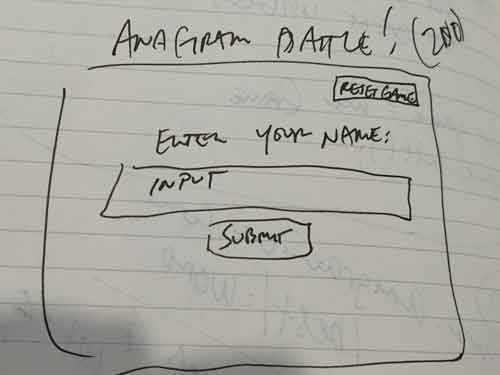 ANAGRAM BATTLE! (200)
RESET GAME
ENTER YOUR NAME:
INPUT
SUBMIT